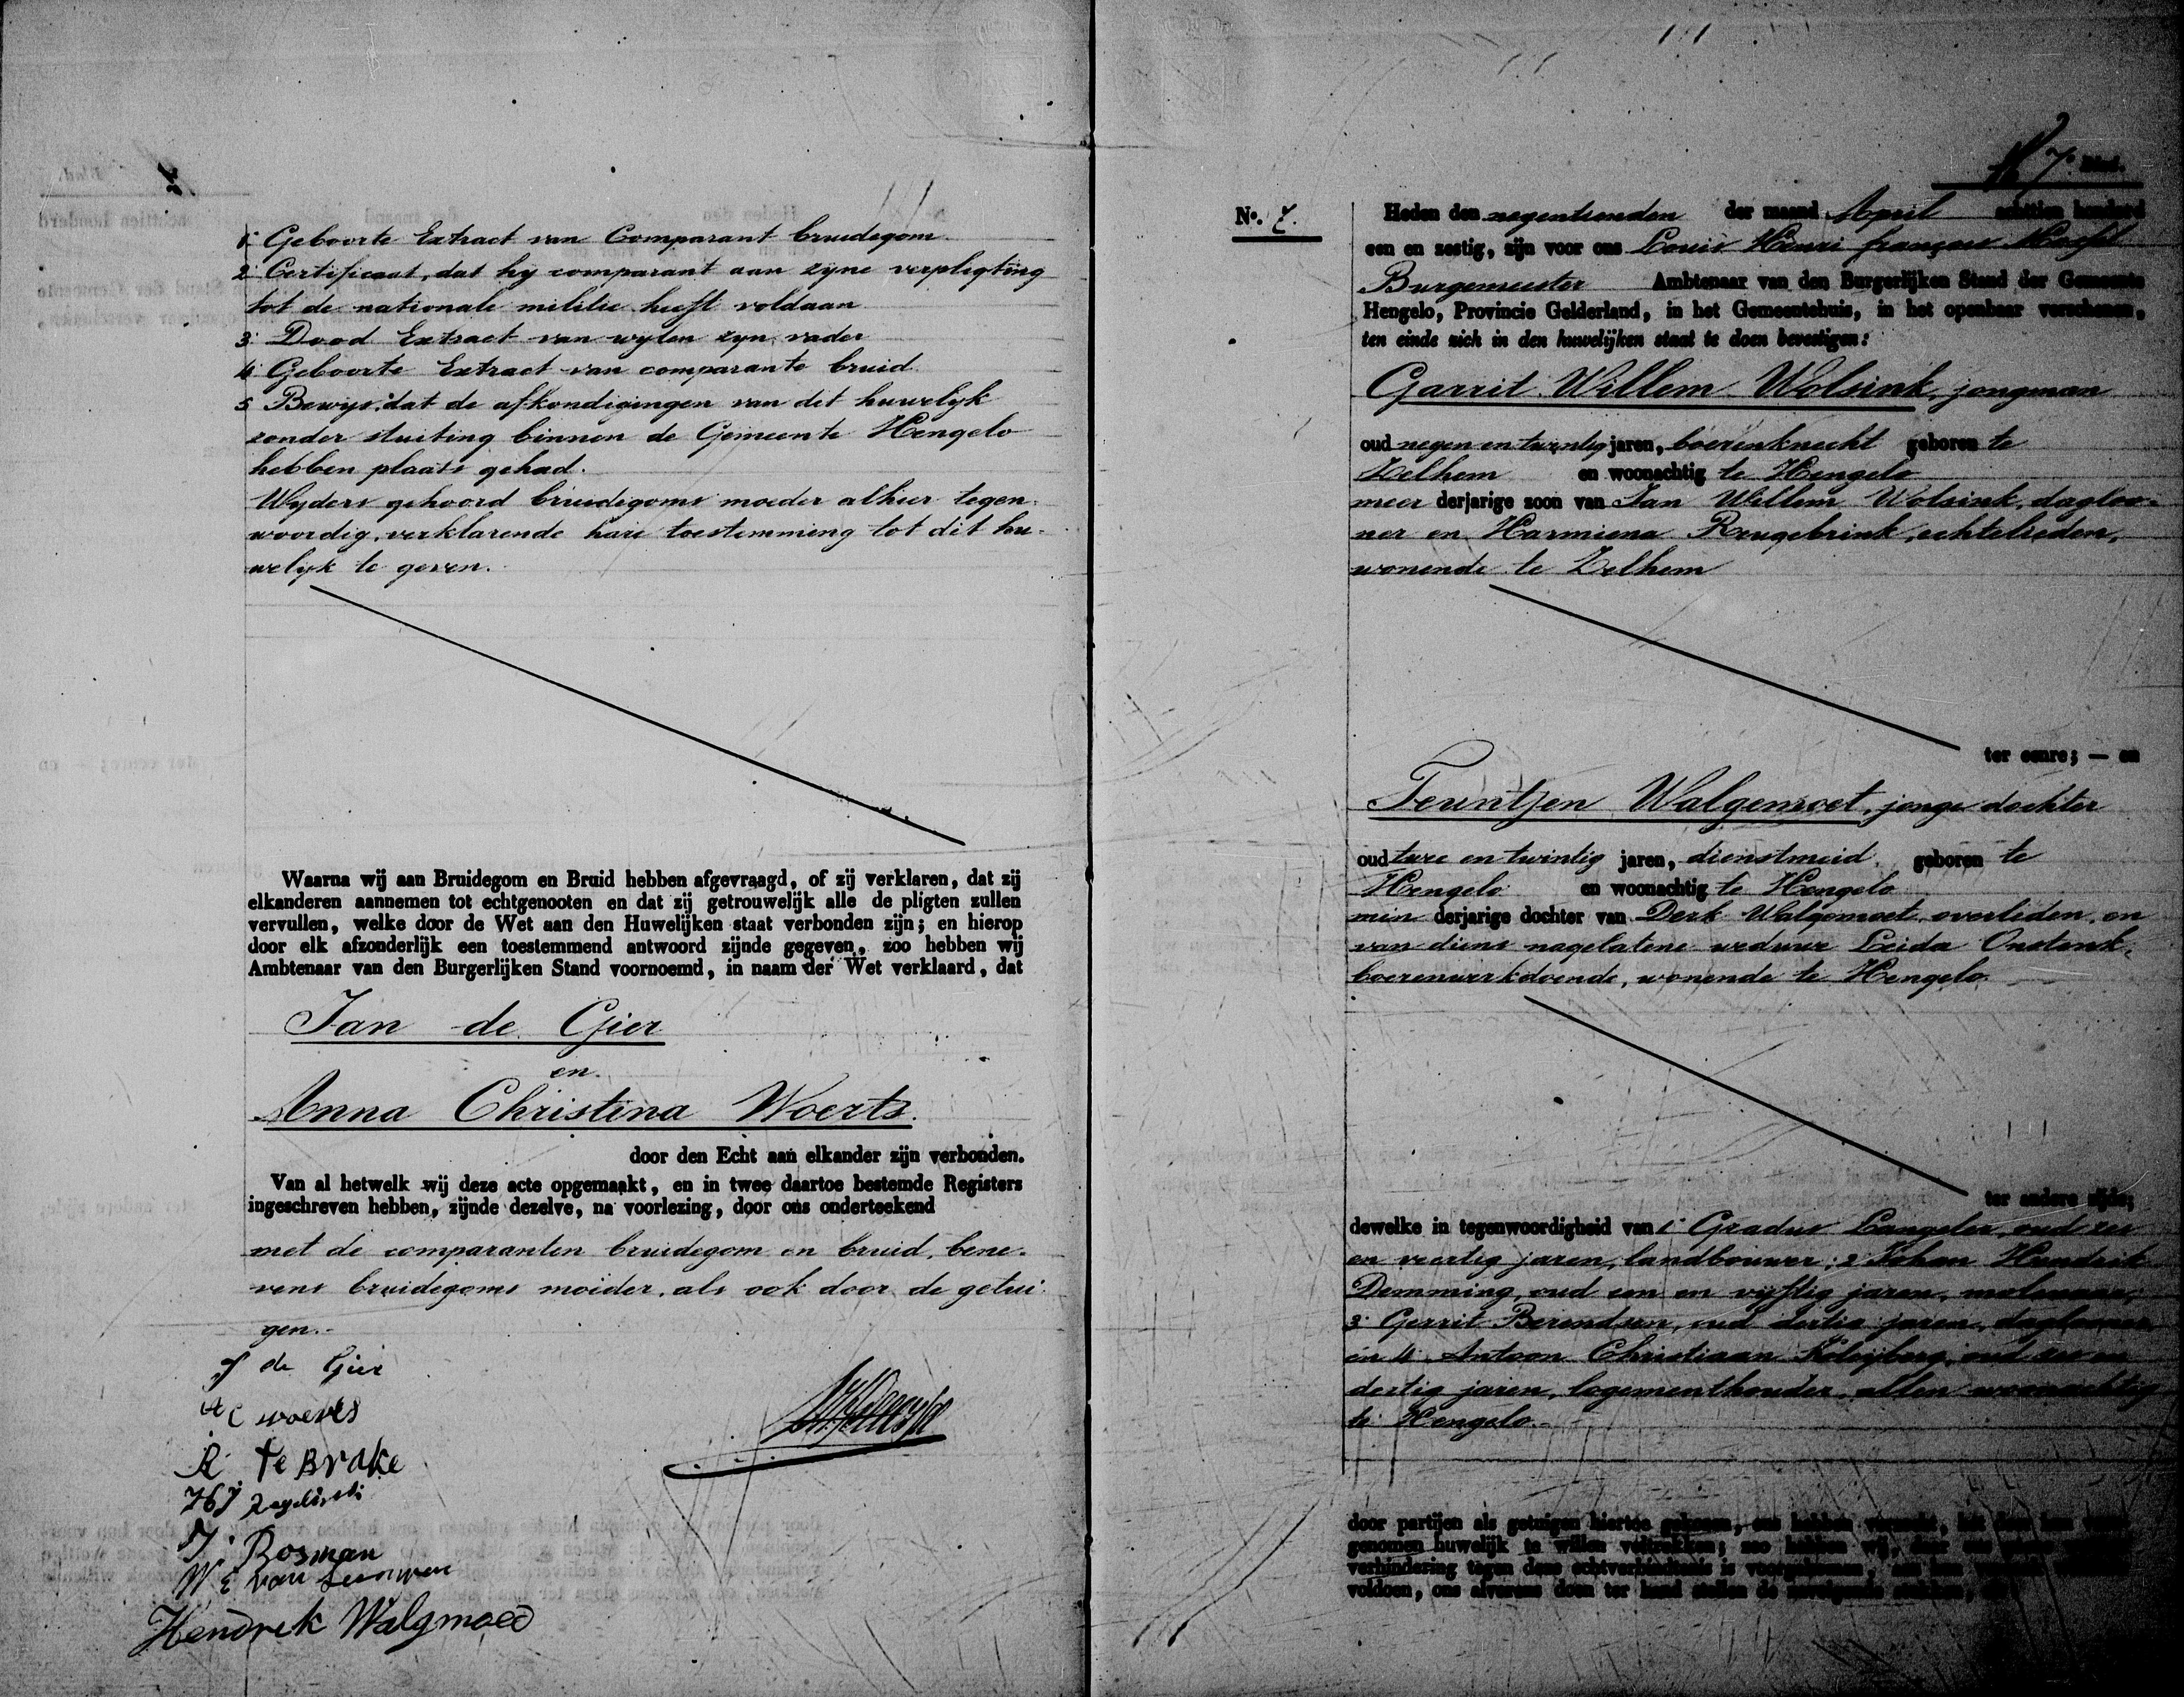 1. Geboorte Extract van Comparant bruidegom.
2. Certificaat, dat hy comparant aan zyne verpligting
tot de nationale militie heeft voldaan
3. Dood Extract van wylen zyn vader
4. Geboorte Extract van comparante bruid.
5. Bewys, dat de afkondigingen van dit huwelyk
zonder stuiting binnen de Gemeente Hengelo
hebben plaats gehad.
Wyders gehoord bruidegoms moeder alhier tegen-
woordig, verklarende hare toestemming tot dit hu-
welyk te geven.
Waarna wij aan Bruidegom en Bruid hebben afgevraagd, of zij verklaren, dat zij
elkanderen aannemen tot echtgenooten en dat zij getrouwelijk alle de pligten zullen
vervullen, welke door de Wet aan den Huwelijken staat verbonden zijn; en hierop
door elk afzonderlijk een toestemmend antwoord zijnde gegeven, zoo hebben wij
Ambtenaar van den Burgerlijken Stand voornoemd, in naam der Wet verklaard, dat
Jan de Gier
en
Anna Christina Woerts.
door den Echt aan elkander zijn verbonden.
Van al hetwelk wij deze acte opgemaakt, en in twee daartoe bestemde Registers
ingeschreven hebben, zijnde dezelve, na voorlezing, door ons onderteekend
met de comparanten bruidegom en bruid, bene-
vens bruidegoms moeder, als ook door de getui-
gen.
J de Gier
A C woerts
R te Brake
J. Bosman
van
Hendrek Walgmoed
7e Blad.
No. 7.
Heden den negentienden der maand April achttien honderd
een en zestig, zijn voor ons Louis Henri françois
Burgemeester Ambtenaar van den Burgerlijken Stand der Gemeente
Hengelo, Provincie Gelderland, in het Gemeentehuis, in het openbaar verschenen,
ten einde zich in den huwelijken staat te doen bevestigen:
Garrit Willem Wolsink, jongman
oud negen en twintig jaren, boerenknecht geboren te
Zelhem en woonachtig te Hengelo
meer derjarige zoon van Jan Willem Wolsink, dagloo-
ner en Harmiena Reugebrink, echtelieden,
wonende te Zelhem
ter eenre; — en
Teuntjen Walgemoet, jonge dochter
oud twee en twintig jaren, dienstmeid, geboren te
Hengelo en woonachtig te Hengelo
min derjarige dochter van Derk Walgemoet, overleden, en
van diens nagelatene weduwe Leida Onstenk,
boerenwerkdoende, wonende te Hengelo.
ter andere zijde;
dewelke in tegenwoordigheid van 1. Gradus Langeler, oud zes
en veertig jaren, landbouwer; 2. Johan Hendrik
Demming, oud een en vijftig jaren, molenaar,
3. Gerrit Berendsen, oud dertig jaren, daglooner
en 4. Antoon Christiaan oud zes en
dertig jaren, logementhouder, allen woonachtig
te Hengelo.
door partijen als getuigen hiertoe gekozen, ons hebben verzocht, het
genomen huwelijk te willen voltrekken; zoo hebben wij,
verhindering tegen deze echtverbindtenis is voorgekomen, aan
voldoen, ons alvorens doen ter hand stellen de navolgende stukken,